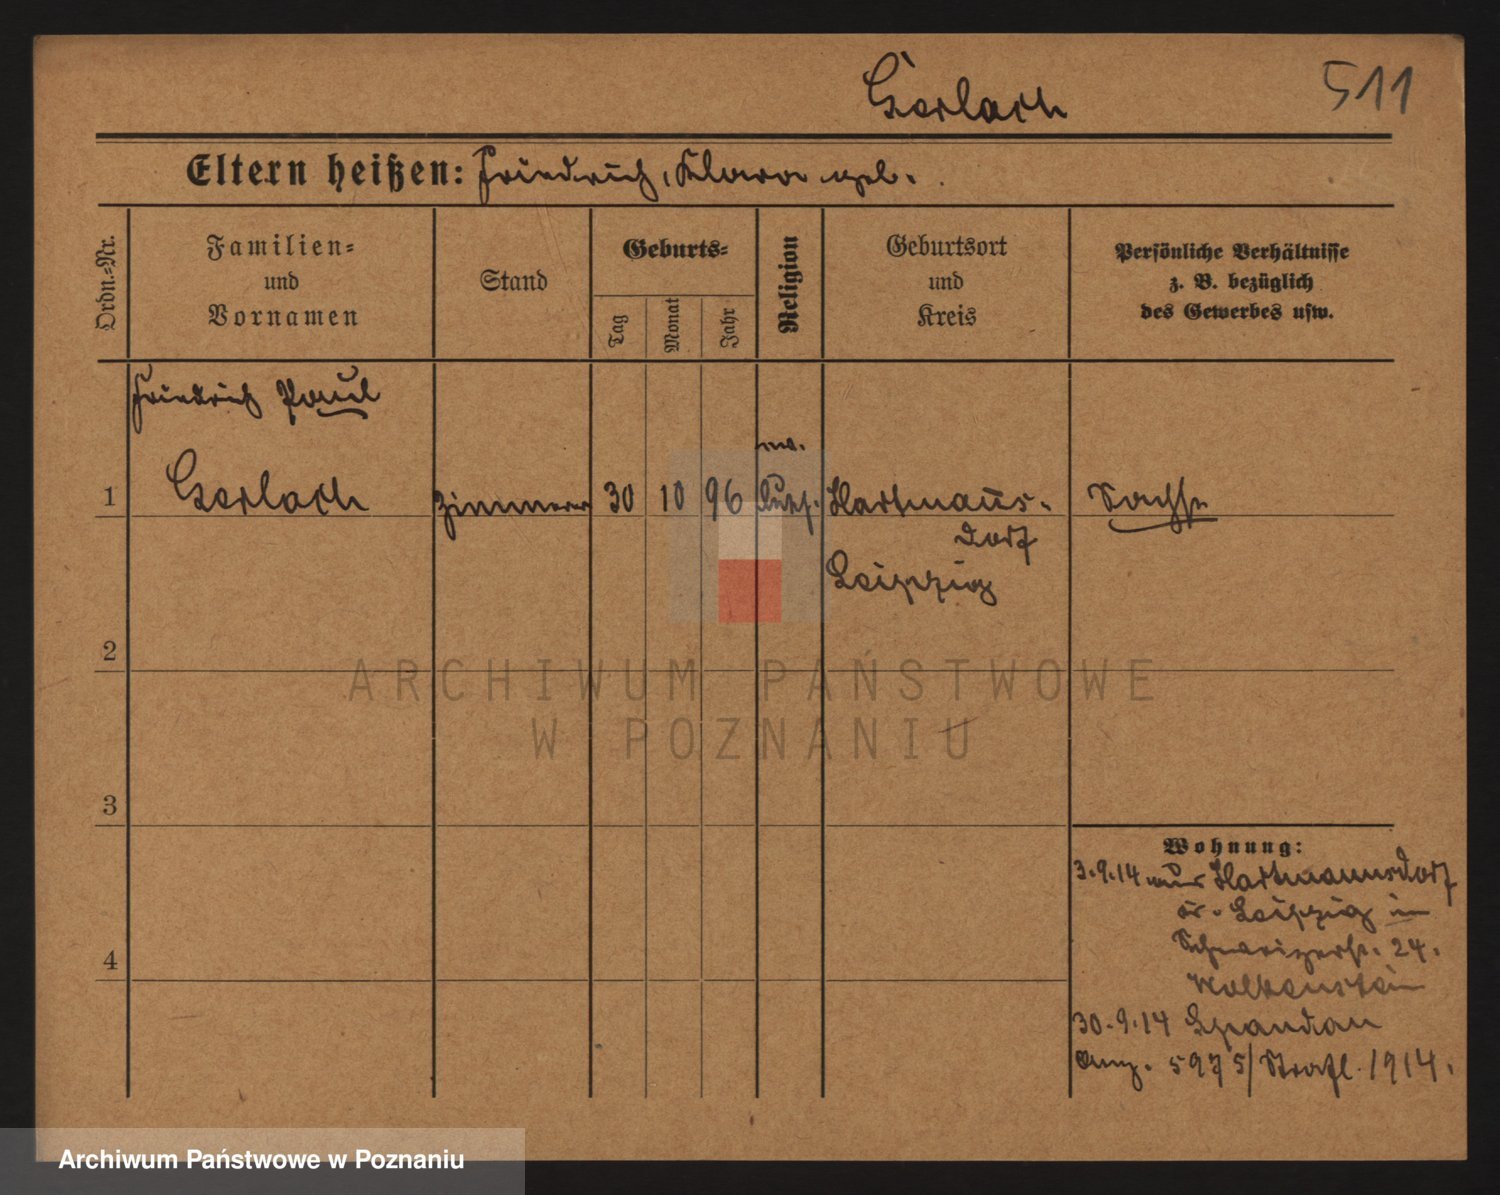 Gerlach
511
Eltern heißen: Friedrich, Klara geb.
Ordn.-Nr.
Familien-
und
Vornamen
Stand
Geburts-
Tag
Monat
Jahr
Religion
Geburtsort
und
Kreis
Persönliche Verhältnisse
z. B. bezüglich
des Gewerbes usw.
Friedrich Paul
ev.
1 Gerlach Zimmerer 30 10 96 Luth. Hartmanns-
Sachse
dorf
Leipzig
2
ARCHIWUM PAŃSTWOWE
W POZNANIU
3
Wohnung:
3.9.14 aus Hartmannsdorf
Kr. Leipzig in
24.
Wolkenstein
4
30.9.14 Spandau
Anz. 5975/Strafl. 1914.
Archiwum Państwowe w Poznaniu